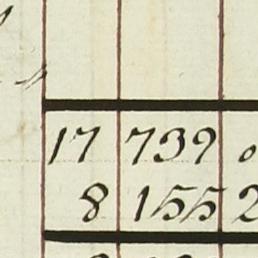 17 739
8 155 2